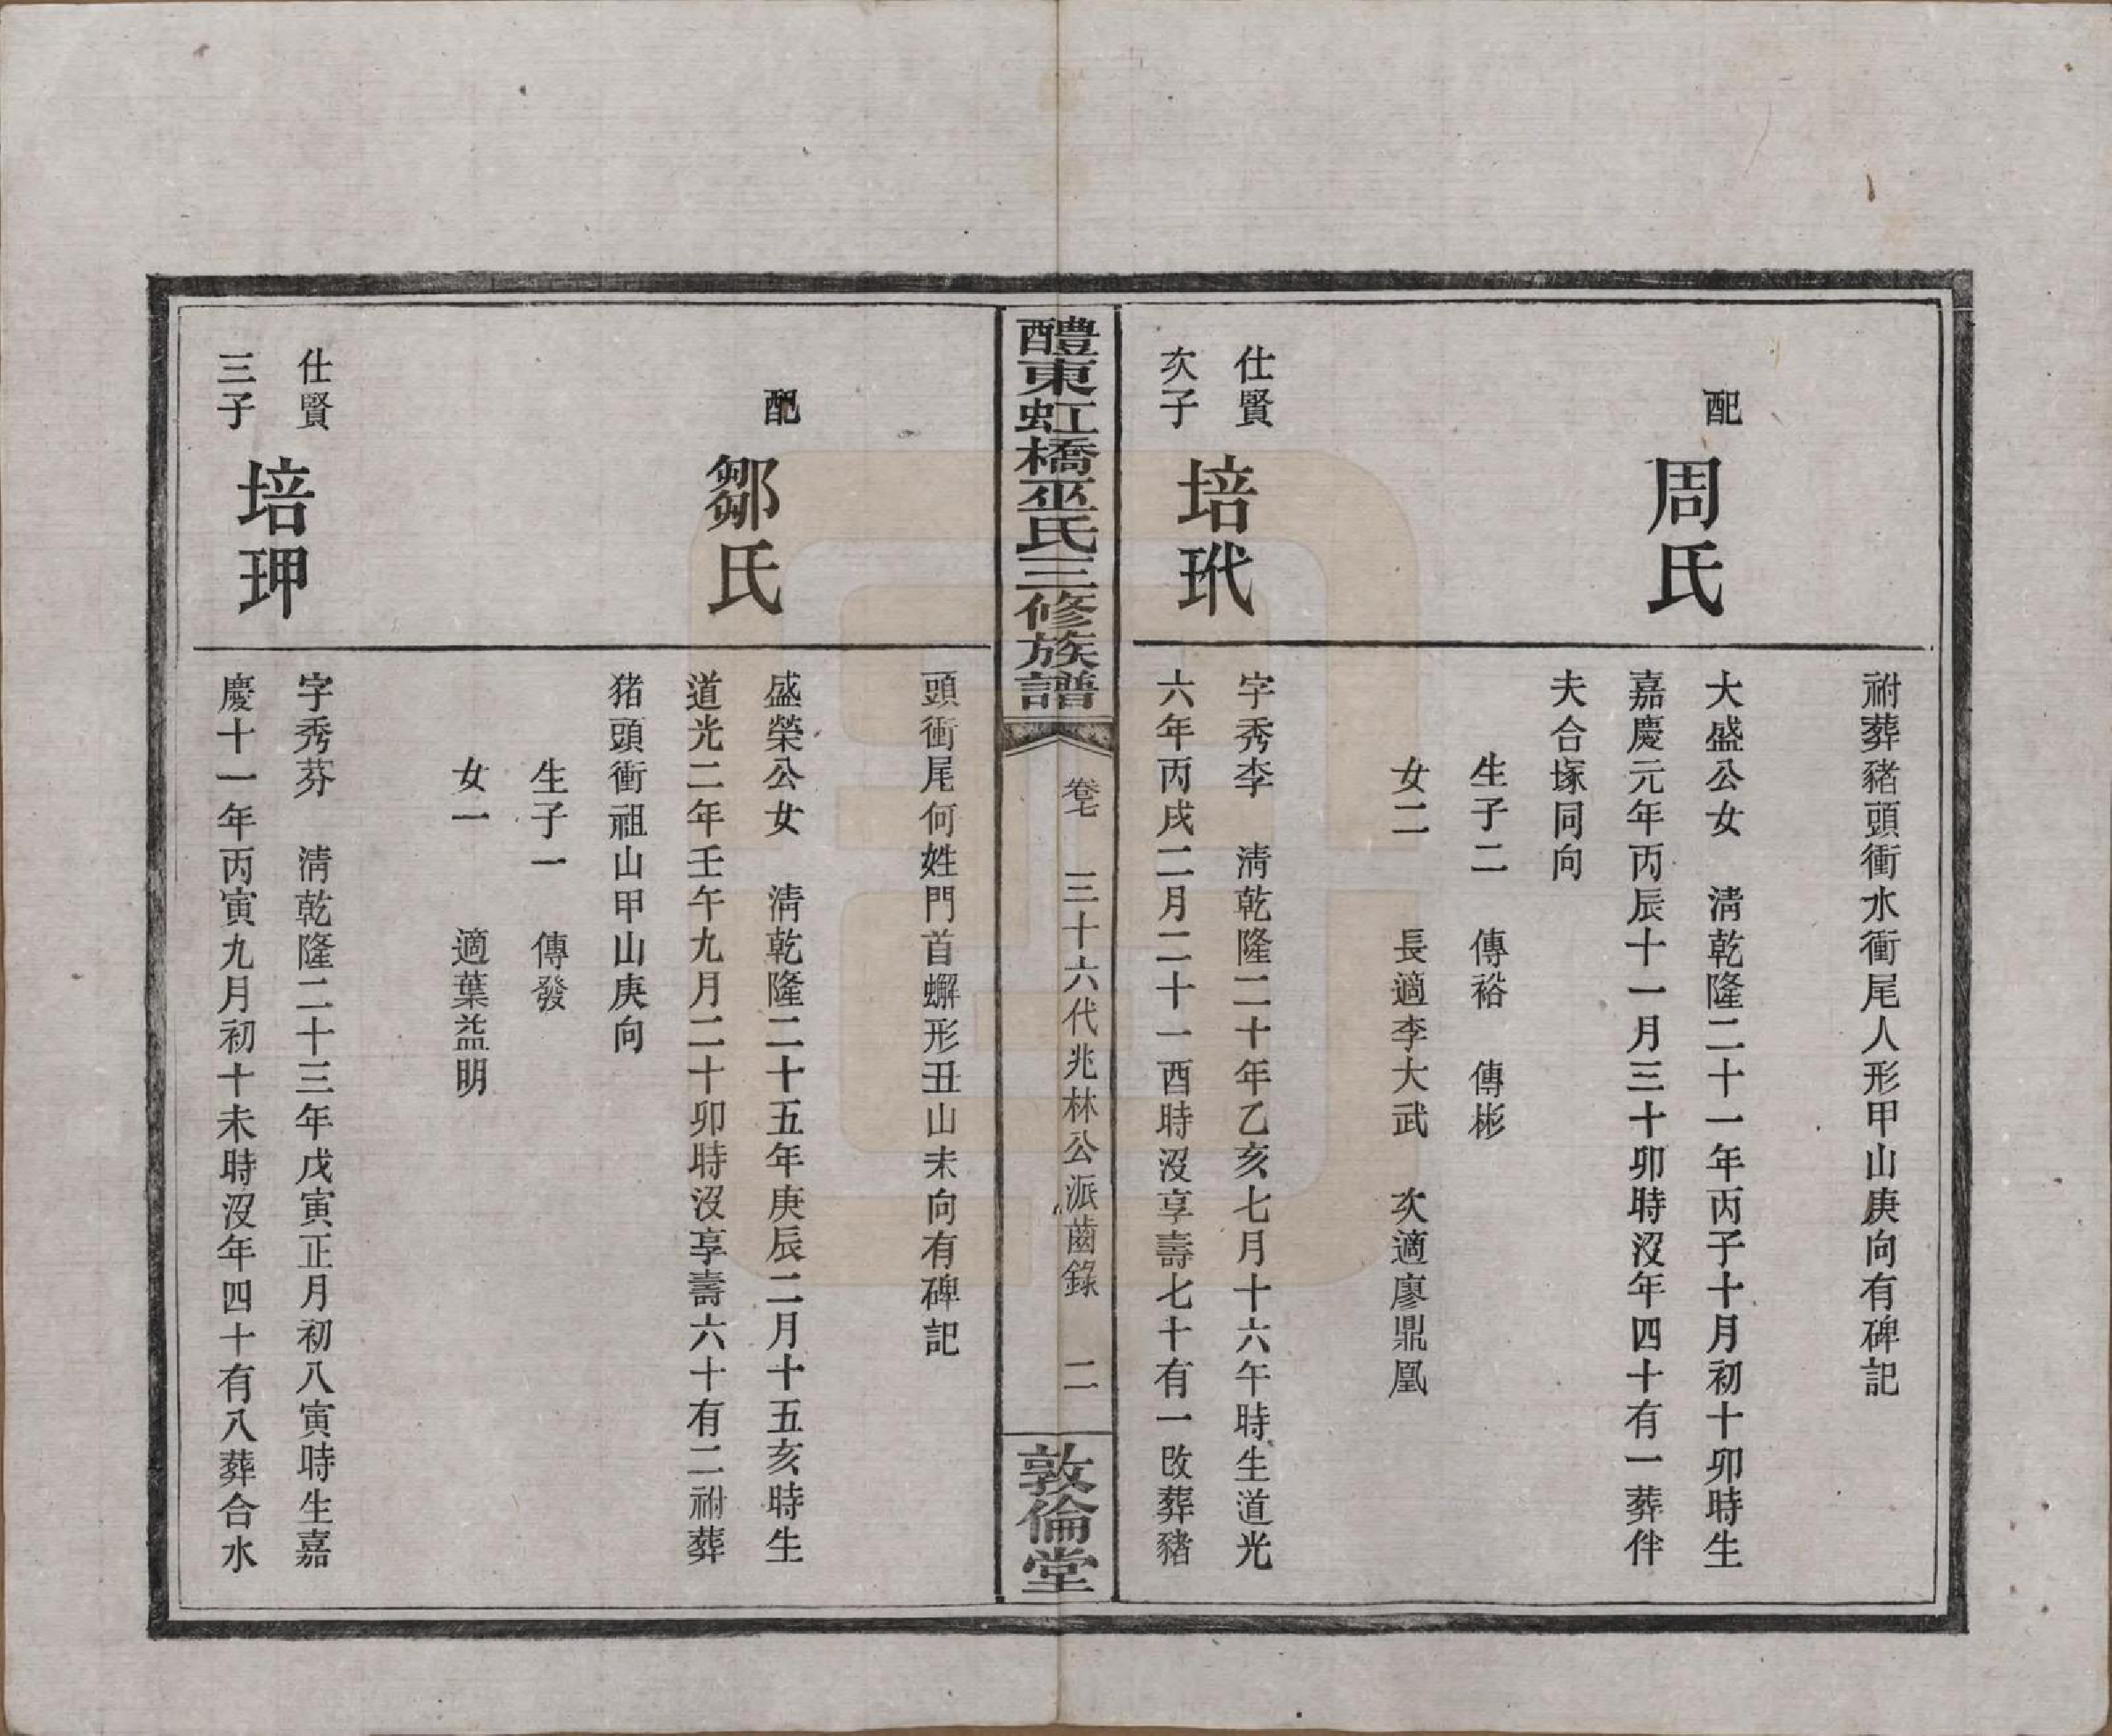 祔葬豬頭衝水衝尾人形甲山庚向有碑記
配
周氏
大盛公女　淸乾隆二十一年丙子十月初十卯時生
嘉慶元年丙辰十一月三十卯時沒年四十有一葬伴
夫合塚同向
生子二　傳裕　傳彬
女二　　長適李大武　次適廖鼎凰
仕賢
次子
培玳
字秀李　淸乾隆二十年乙亥七月十六午時生道光
六年丙戌二月二十一酉時沒享壽七十有一改葬豬
醴東虹橋巫氏三修族譜
卷七
三十六代兆林公派齒錄
二
敦倫堂
頭衝尾何姓門首蠏形丑山未向有碑記
配
鄒氏
盛榮公女　淸乾隆二十五年庚辰二月十五亥時生
道光二年壬午九月二十卯時沒享壽六十有二祔葬
猪頭衝祖山甲山庚向
生子一　傳發
女一　　適葉益明
仕賢
三子
培玾
字秀芬　淸乾隆二十三年戊寅正月初八寅時生嘉
慶十一年丙寅九月初十未時沒年四十有八葬合水